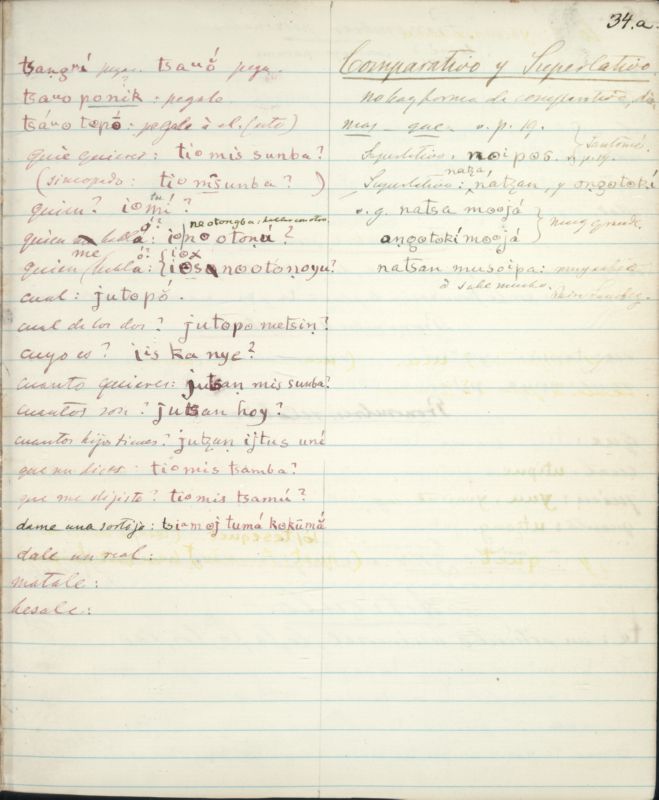 34.a.
tsangrí pegar. tsauǒ́ pega.
tsauo ponik. pegalo
tsáuo topǒ́. pegale à el. (uto)
que quieres: tiomis sunba?
(sincopado: tiom̄s̄unba? )
quien? iomí?
neotongba: hablar con otro.
quien habla: ionootoná?
quien me habla: nootonoyu?
iox
cual: jutopǒ́.
cual de los dos? jutopo metsiṇ?
cuyo es? iis ka nye?
cuanto quieres: jutsaṇ mis sunba?
cuantos son? jutsan hoy?
cuantos hijos tienes? jutzaṇ ijtus uné
que me dices. tiomis tsamba?
que me dijiste? tiomis tsamú?
dame una sortija: tsiamoj tumá kokūmǎ́
dale un real:
matale:
besale:
Comparativo y Superlativo
no hay forma de comparativo, di-
mos - que - v. p. 19.
Superlativo. noipǒs. v. p. 19.
natzá
Superlativo: natzan, y ongotokí
v.g. natsa moojá
angotokí moojá
muy grande.
natsan musoipa: muy sabio
ò sabe mucho.